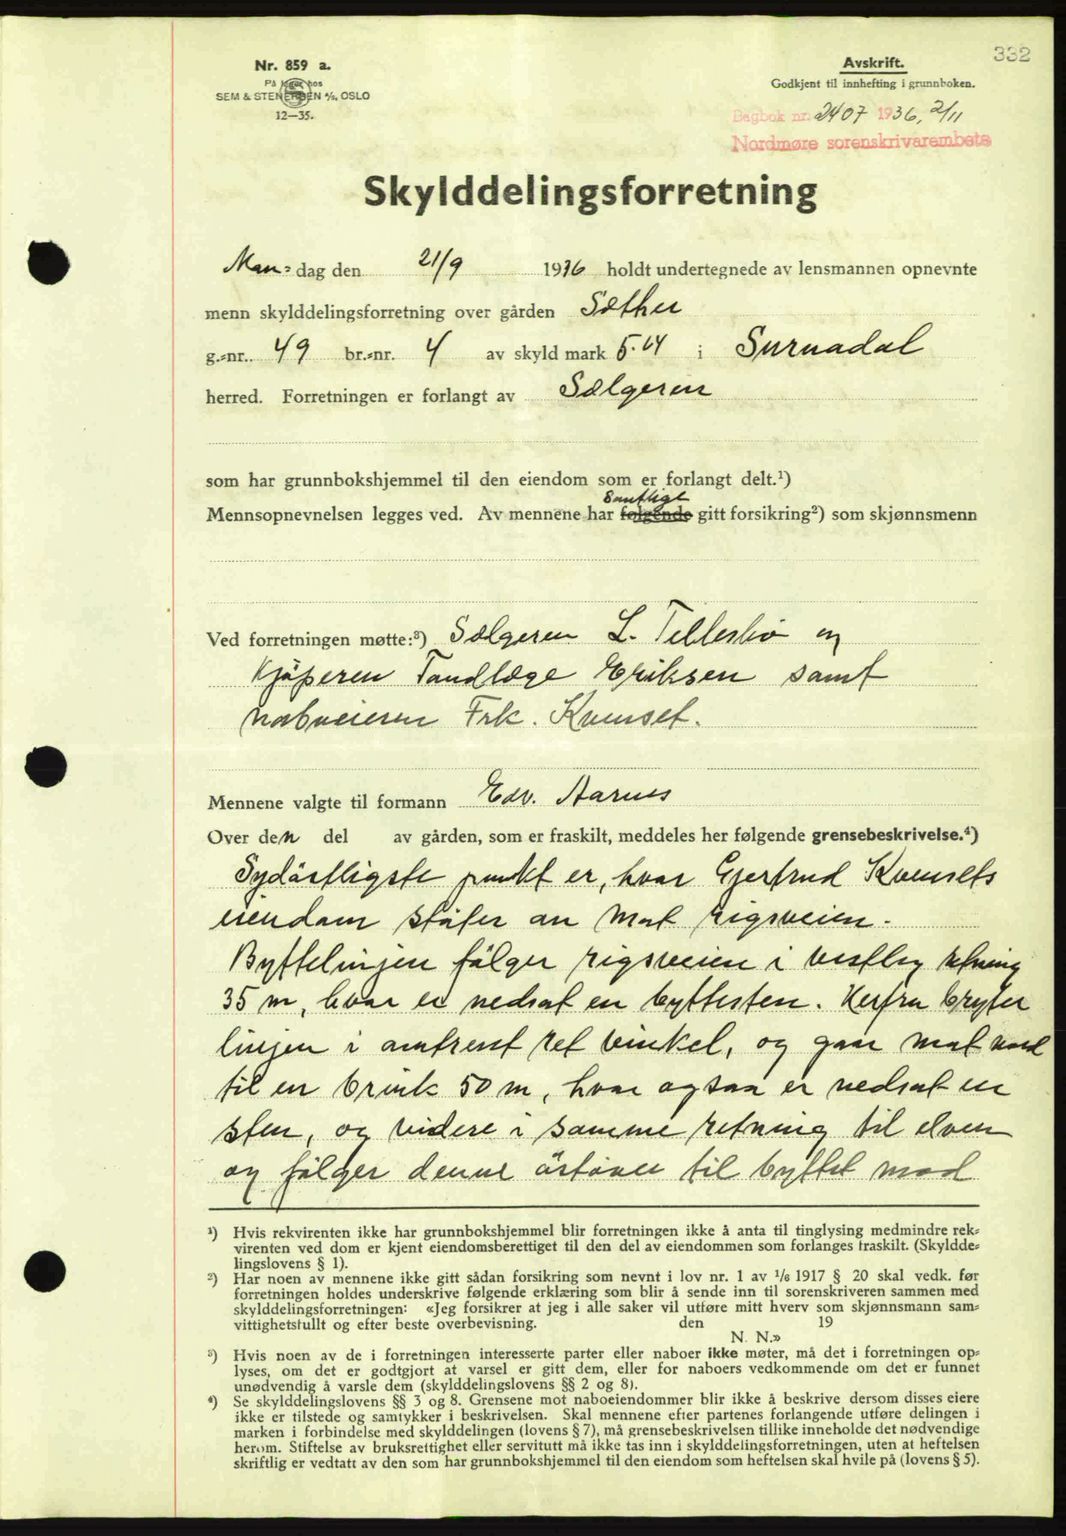 332
Nr. 859 a.
På lager hos
SEM & STENERSEN A/S, OSLO
12—35.
Avskrift.
Godkjent til innhefting i grunnboken.
Dagbok nr. 2407 1936, 2/11
Nordmøre sorenskrivarembete
Skylddelingsforretning
Man= dag den 21/9 1936 holdt undertegnede av lensmannen opnevnte
menn skylddelingsforretning over gården Sæther
g.=nr. 49 br.=nr. 4 av skyld mark 5.04 i Surnadal
herred. Forretningen er forlangt av Sælgeren
som har grunnbokshjemmel til den eiendom som er forlangt delt.¹)
samtlige
Mennsopnevnelsen legges ved. Av mennene har følgende gitt forsikring²) som skjønnsmenn
Ved forretningen møtte:³) Sælgeren L. Tellesbø og
Kjøperen Tandlæge Eriksen samt
naboeieren Frk. Kvenset.
Mennene valgte til formann Edv. Aarnes
Over den del av gården, som er fraskilt, meddeles her følgende grensebeskrivelse.⁴)
Sydöstligste punkt er, hvor Gjertrud Kvensets
eiendom støter an mot rigsveien.
Byttelinjen følger rigsveien i vestlig retning
35 m, hvor er nedsat en byttesten. Herfra bryter
linjen i omtrent ret vinkel, og gaar mot nord
til en brink 50 m, hvor ogsaa er nedsat en
sten, og videre i samme retning til elven
og følger denne östover til byttet mod
¹) Hvis rekvirenten ikke har grunnbokshjemmel blir forretningen ikke å anta til tinglysing medmindre rek=
virenten ved dom er kjent eiendomsberettiget til den del av eiendommen som forlanges fraskilt. (Skyldde=
lingslovens § 1).
²) Har noen av mennene ikke gitt sådan forsikring som nevnt i lov nr. 1 av 1/6 1917 § 20 skal vedk. før
forretningen holdes underskrive følgende erklæring som blir å sende inn til sorenskriveren sammen med
skylddelingsforretningen: «Jeg forsikrer at jeg i alle saker vil utføre mitt hverv som skjønnsmann sam=
vittighetsfullt og efter beste overbevisning. den 19
N. N.»
³) Hvis noen av de i forretningen interesserte parter eller naboer ikke møter, må det i forretningen op=
lyses, om det er godtgjort at varsel er gitt dem, eller for naboers vedkommende om det er funnet
unødvendig å varsle dem (skylddelingslovens §§ 2 og 8).
⁴) Se skylddelingslovens §§ 3 og 8. Grensene mot naboeiendommer blir ikke å beskrive dersom disses eiere
ikke er tilstede og samtykker i beskrivelsen. Skal mennene efter partenes forlangende utføre delingen i
marken i forbindelse med skylddelingen (lovens § 7), må grensebeskrivelsen tillike inneholde det nødvendige
herom. Stiftelse av bruksrettighet eller servitutt må ikke tas inn i skylddelingsforretningen, uten at heftelsen
skriftlig er vedtatt av den som har grunnbokshjemmel til den eiendom som heftelsen skal hvile på (lovens § 5).